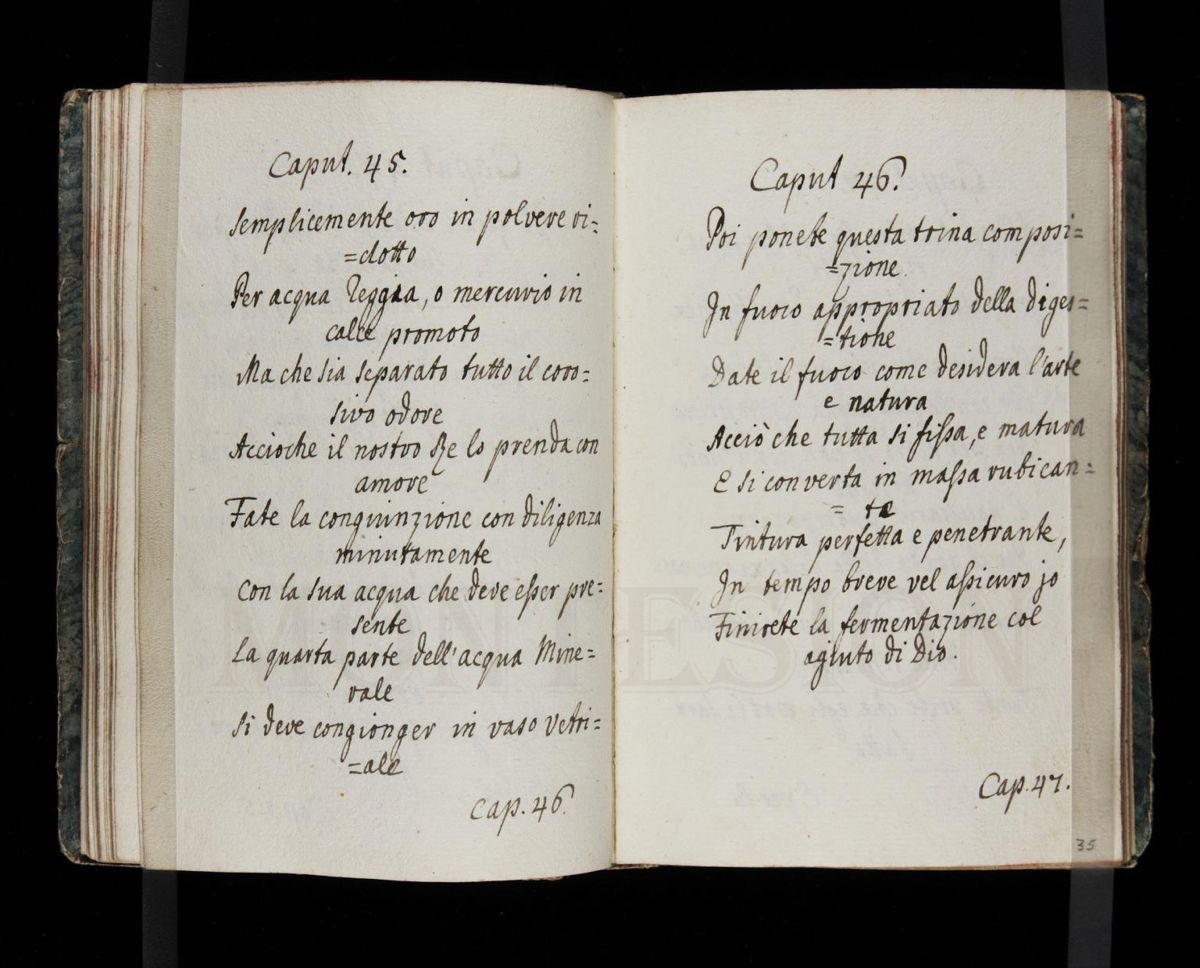 Caput. 45.
Semplicemente oro in polvere ri=
=dotto
Per acqua Reggia, o mercurio in
calce promoto
Ma che sia separato tutto il coro=
sivo odore
Accioche il nostro Re lo prenda con
amore
Fate la congiunzione con diligenza
minutamente
Con la sua acqua che deve esser pre=
sente
La quarta parte dell'acqua Mine=
rale
Si deve congionger in vaso Vetri=
=ale
Cap. 46.
Caput 46.
Poi ponete questa trina composi=
=zione.
In fuoco appropriato della diges=
=tione
Date il fuoco come desidera l'arte
e natura
Acciò che tutta si fissa, e matura
E si converta in massa rubican=
= te
Tintura perfetta e penetrante,
In tempo breve vel assicuro jo
Finirete la fermentazione col
agiuto di Dio.
Cap. 47.
35
MONTESION